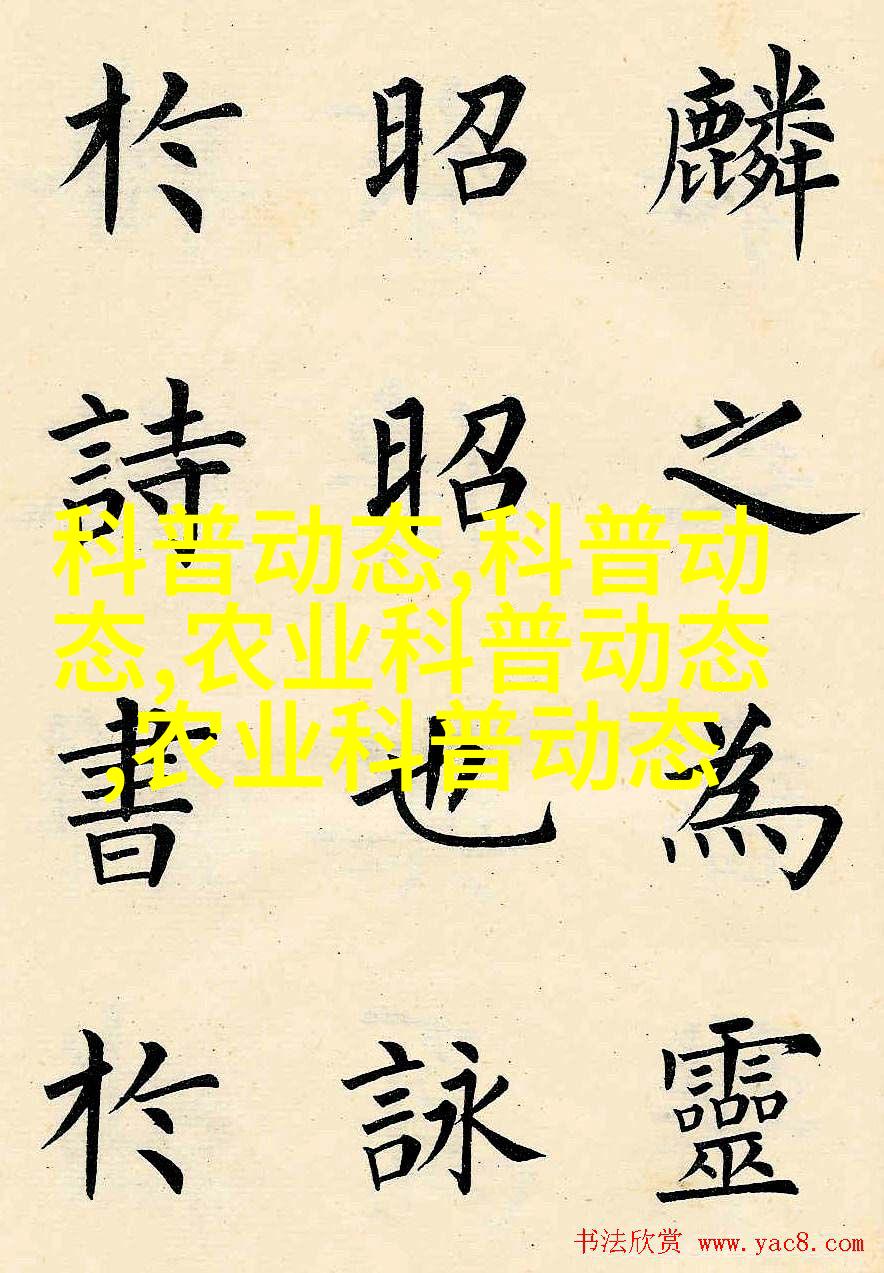 麟之為靈
昭昭也詠
於詩書於
科普动态,科普动
态,农业科普动态
,农业科普动态
书法欣赏 www.yac8.com